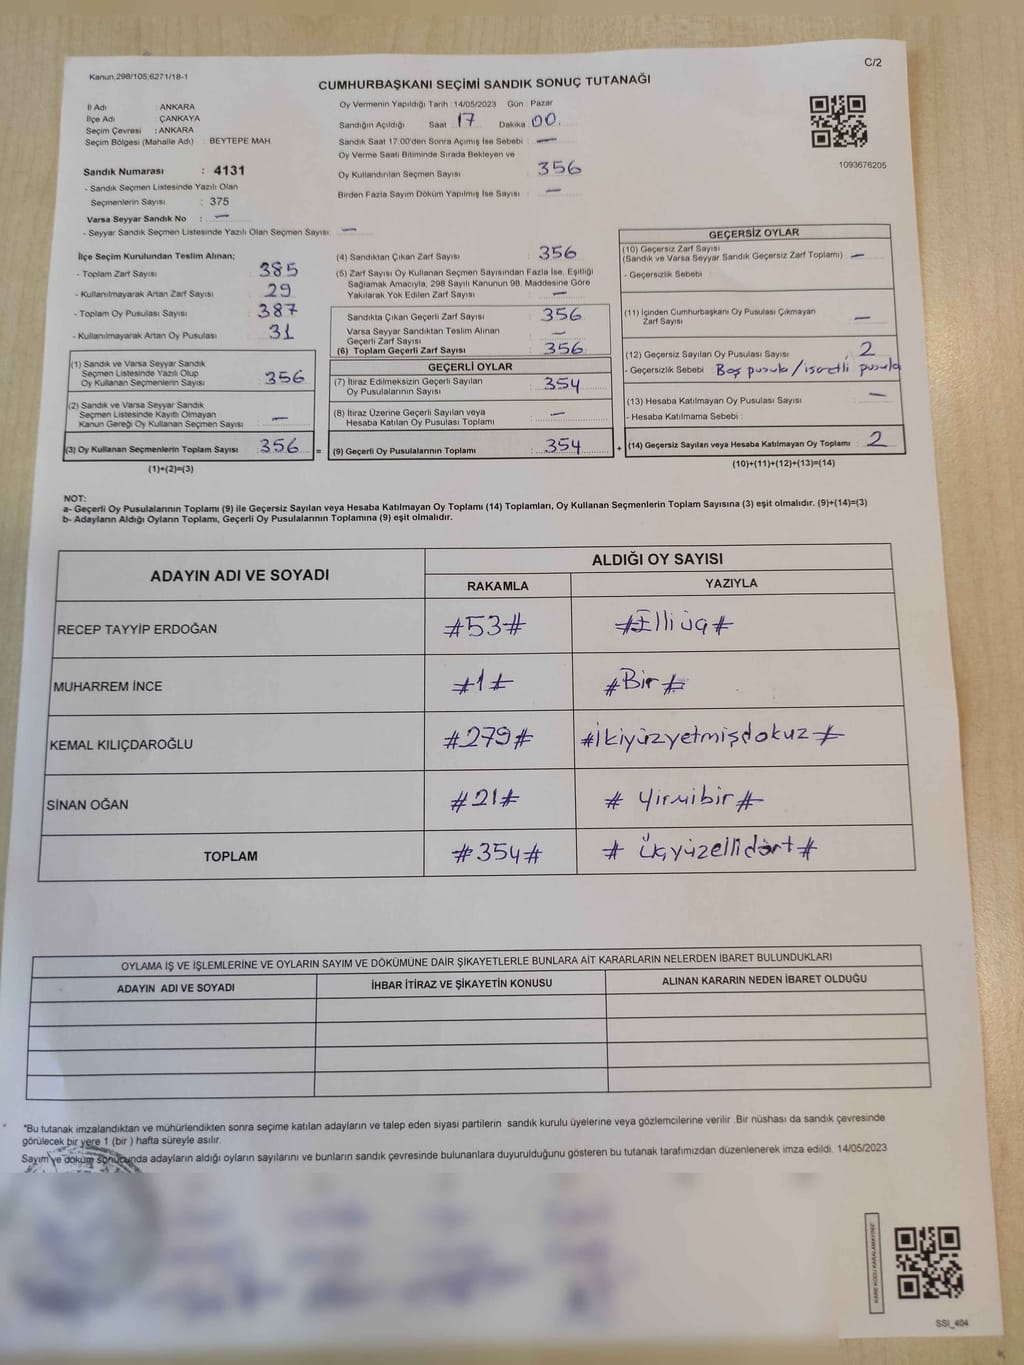 Kanun:298/105,6271/18-1
C/2
CUMHURBAŞKANI SEÇİMİ SANDIK SONUÇ TUTANAĞI
İl Adı : ANKARA
İlçe Adı : ÇANKAYA
Seçim Çevresi : ANKARA
Seçim Bölgesi (Mahalle Adı) : BEYTEPE MAH
Sandık Numarası : 4131
- Sandık Seçmen Listesinde Yazılı Olan
Seçmenlerin Sayısı : 375
Varsa Seyyar Sandık No : —
- Seyyar Sandık Seçmen Listesinde Yazılı Olan Seçmen Sayısı: —
Oy Vermenin Yapıldığı Tarih :14/05/2023 Gün : Pazar
Sandığın Açıldığı Saat 17 Dakika 00.
Sandık Saat 17:00'den Sonra Açımış İse Sebebi : —
Oy Verme Saati Bitiminde Sırada Bekleyen ve
Oy Kullandırılan Seçmen Sayısı : 356
Birden Fazla Sayım Döküm Yapılmış İse Sayısı : —
1093676205
İlçe Seçim Kurulundan Teslim Alınan;
- Toplam Zarf Sayısı : 385
- Kullanılmayarak Artan Zarf Sayısı : 29
- Toplam Oy Pusulası Sayısı : 387
- Kullanılmayarak Artan Oy Pusulası : 31
(1) Sandık ve Varsa Seyyar Sandık
Seçmen Listesinde Yazılı Olup
Oy Kullanan Seçmenlerin Sayısı : 356
(2) Sandık ve Varsa Seyyar Sandık
Seçmen Listesinde Kayıtlı Olmayan
Kanun Gereği Oy Kullanan Seçmen Sayısı : —
(3) Oy Kullanan Seçmenlerin Toplam Sayısı : 356 =
(1)+(2)=(3)
(4) Sandıktan Çıkan Zarf Sayısı : 356
(5) Zarf Sayısı Oy Kullanan Seçmen Sayısından Fazla İse, Eşitliği
Sağlamak Amacıyla, 298 Sayılı Kanunun 98. Maddesine Göre
Yakılarak Yok Edilen Zarf Sayısı : —
Sandıkta Çıkan Geçerli Zarf Sayısı : 356
Varsa Seyyar Sandıktan Teslim Alınan
Geçerli Zarf Sayısı : —
(6) Toplam Geçerli Zarf Sayısı : 356
GEÇERLİ OYLAR
(7) İtiraz Edilmeksizin Geçerli Sayılan
Oy Pusulalarının Sayısı : 354
(8) İtiraz Üzerine Geçerli Sayılan veya
Hesaba Katılan Oy Pusulası Toplamı : —
(9) Geçerli Oy Pusulalarının Toplamı : 354 +
GEÇERSİZ OYLAR
(10) Geçersiz Zarf Sayısı
(Sandık ve Varsa Seyyar Sandık Geçersiz Zarf Toplamı) : —
- Geçersizlik Sebebi :
(11) İçinden Cumhurbaşkanı Oy Pusulası Çıkmayan
Zarf Sayısı : —
(12) Geçersiz Sayılan Oy Pusulası Sayısı : 2
- Geçersizlik Sebebi : Boş pusula/işaretli pusula
(13) Hesaba Katılmayan Oy Pusulası Sayısı : —
- Hesaba Katılmama Sebebi :
(14) Geçersiz Sayılan veya Hesaba Katılmayan Oy Toplamı : 2
(10)+(11)+(12)+(13)=(14)
NOT:
a- Geçerli Oy Pusulalarının Toplamı (9) ile Geçersiz Sayılan veya Hesaba Katılmayan Oy Toplamı (14) Toplamları, Oy Kullanan Seçmenlerin Toplam Sayısına (3) eşit olmalıdır. (9)+(14)=(3)
b- Adayların Aldığı Oyların Toplamı, Geçerli Oy Pusulalarının Toplamına (9) eşit olmalıdır.
ADAYIN ADI VE SOYADI
ALDIĞI OY SAYISI
RAKAMLA YAZIYLA
RECEP TAYYİP ERDOĞAN #53# #Elli üç#
MUHARREM İNCE #1# #Bir#
KEMAL KILIÇDAROĞLU #279# #İkiyüzyetmişdokuz#
SİNAN OĞAN #21# # Yirmibir#
TOPLAM #354# # Üçyüzellidört#
OYLAMA İŞ VE İŞLEMLERİNE VE OYLARIN SAYIM VE DÖKÜMÜNE DAİR ŞİKAYETLERLE BUNLARA AİT KARARLARIN NELERDEN İBARET BULUNDUKLARI
ADAYIN ADI VE SOYADI İHBAR İTİRAZ VE ŞİKAYETİN KONUSU ALINAN KARARIN NEDEN İBARET OLDUĞU
*Bu tutanak imzalandıktan ve mühürlendikten sonra seçime katılan adayların ve talep eden siyasi partilerin sandık kurulu üyelerine veya gözlemcilerine verilir. Bir nüshası da sandık çevresinde
görülecek bir yere 1 (bir ) hafta süreyle asılır.
Sayım ve döküm sonucunda adayların aldığı oyların sayılarını ve bunların sandık çevresinde bulunanlara duyurulduğunu gösteren bu tutanak tarafımızdan düzenlenerek imza edildi. 14/05/2023
KARE KODU KARALAMAYINIZ!
SSİ_404